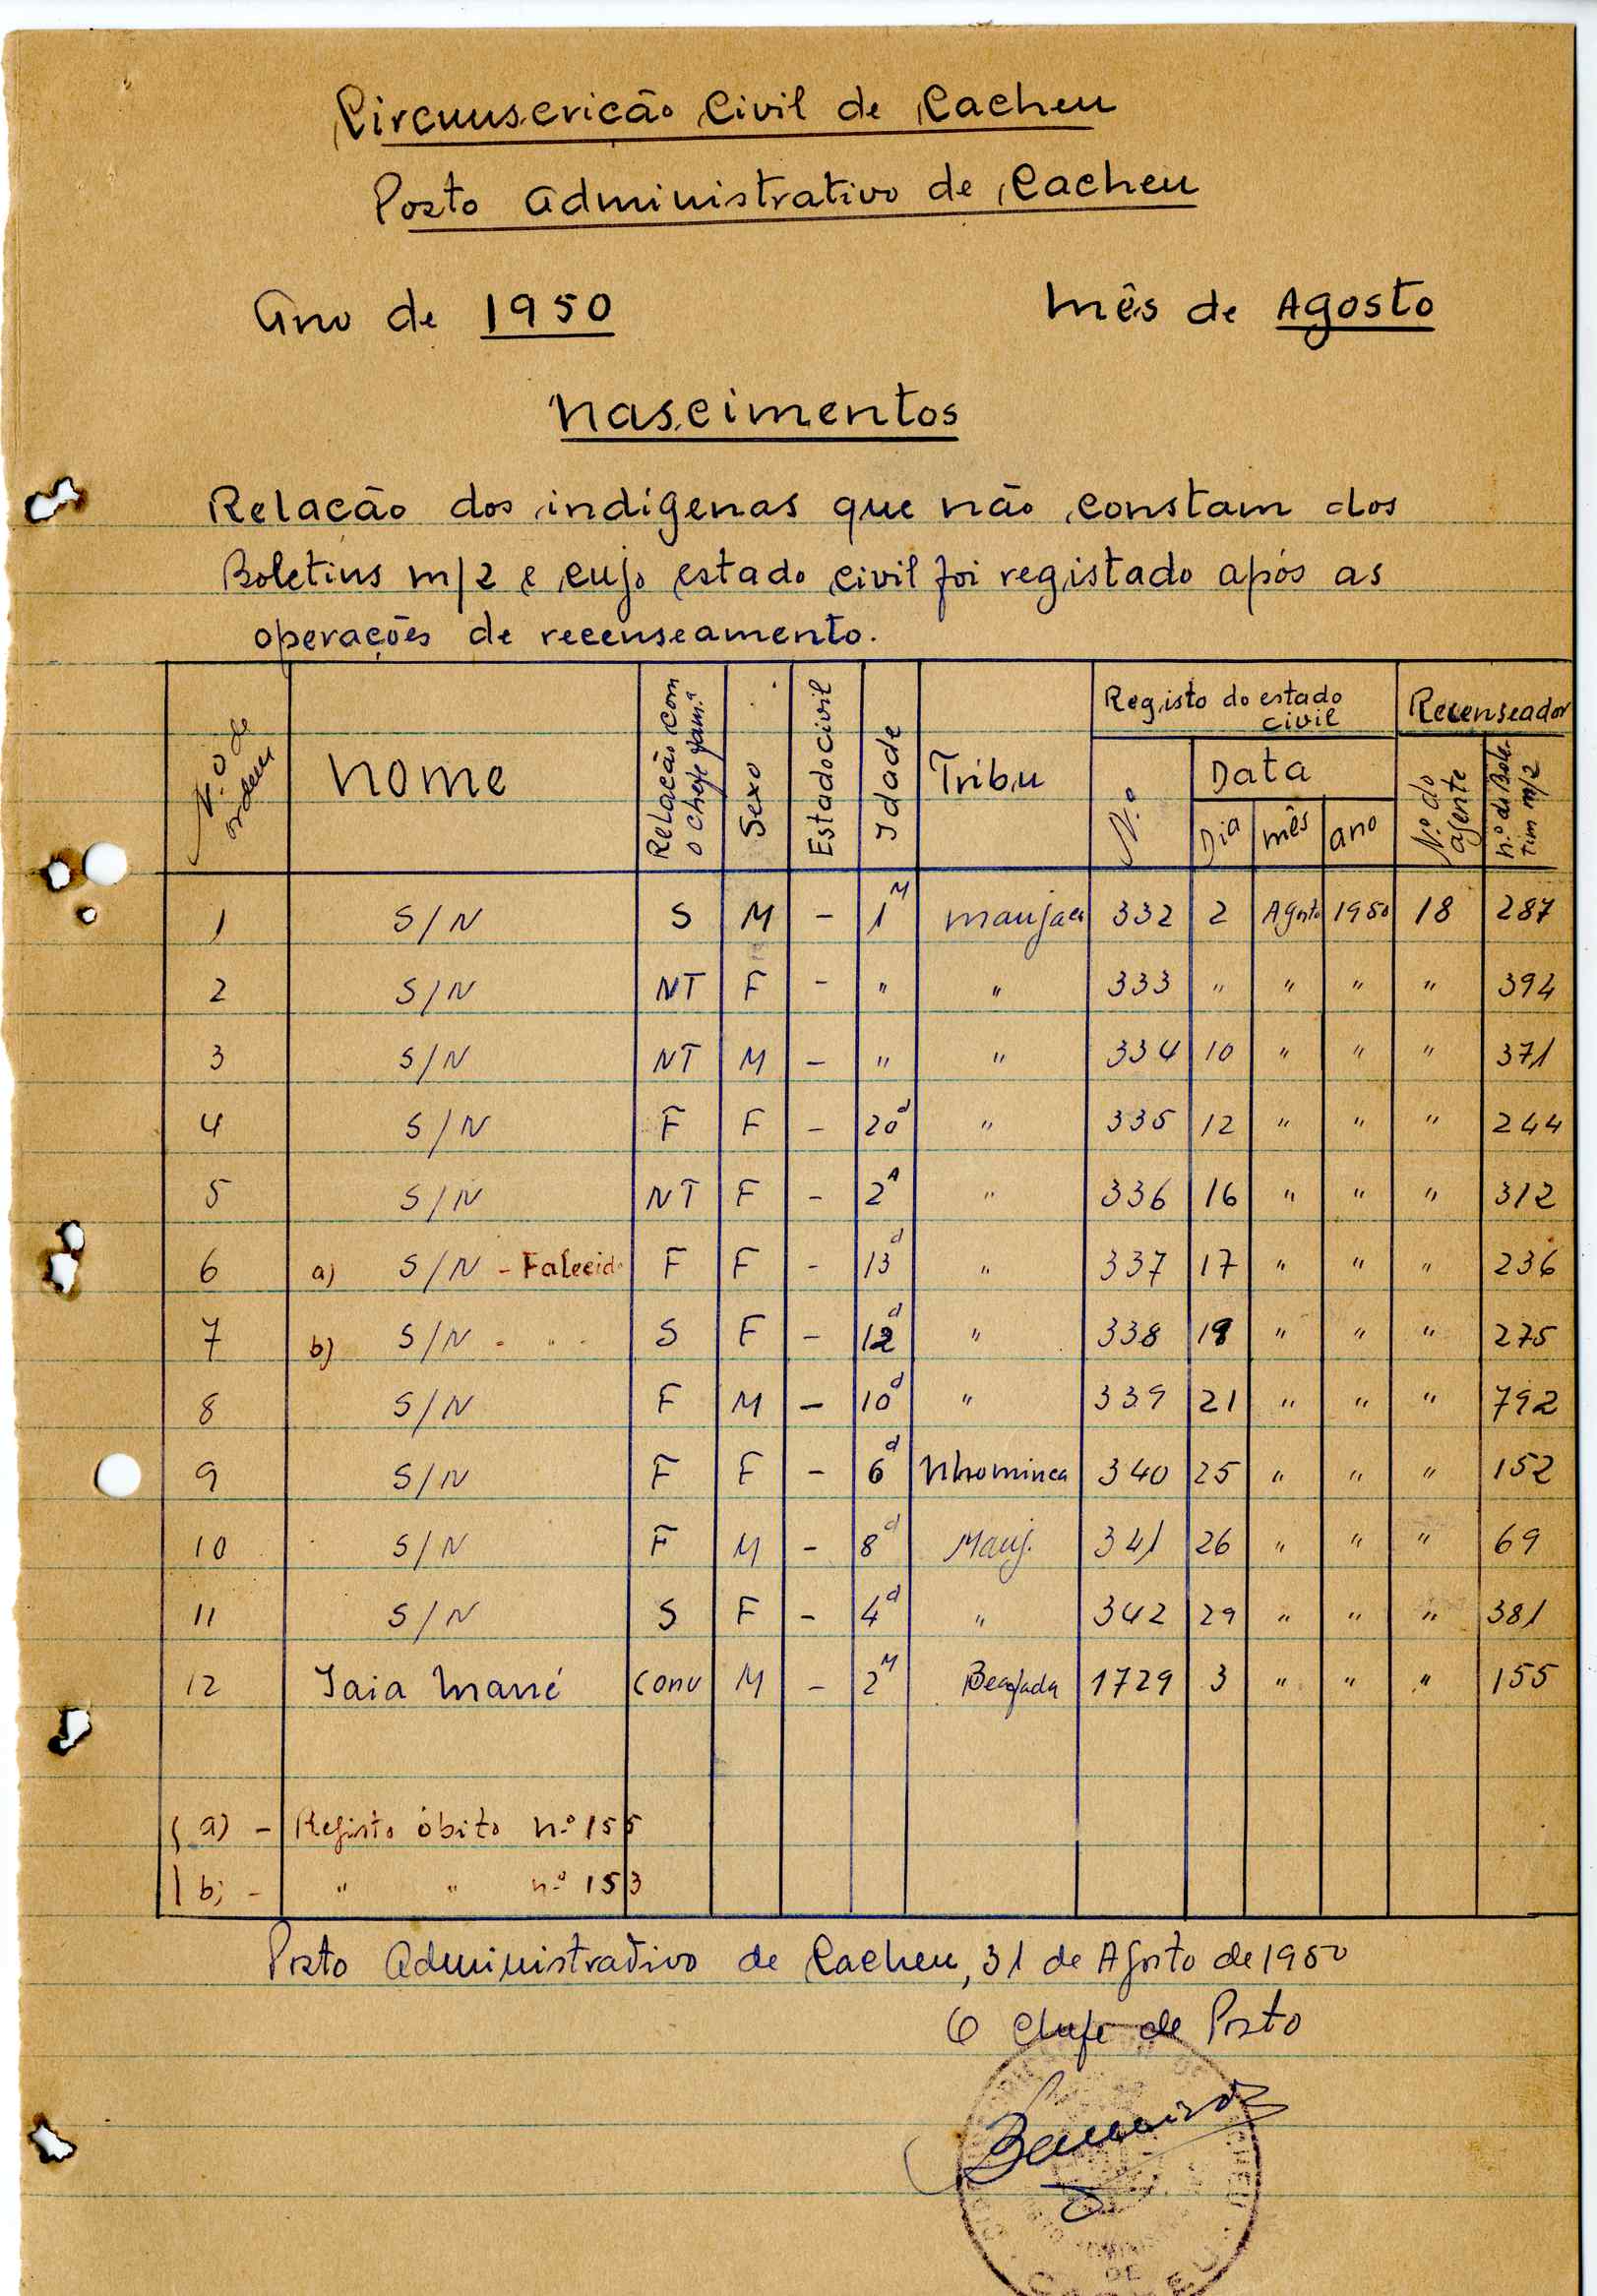 Circunscrição Civil de Cacheu
Posto Administrativo de Cacheu
Ano de 1950 Mês de Agosto
Nascimentos
Relação dos indígenas que não constam dos
Boletins m/2 e cujo estado civil foi registado após as
operações de recenseamento.
N.º de ordem Nome Relação com o chefe fam.ª Sexo Estado civil Idade Tribu Registo do estado civil Recenseador
N.º Data Dia mês ano N.º do agente n.º do Boletim m/2
1 S/N S M - 1 M Manjaca 332 2 Agosto 1950 18 287
2 S/N NT F - " " 333 " " " " 394
3 S/N NT M - " " 334 10 " " " 371
4 S/N F F - 20 d " 335 12 " " " 244
5 S/N NT F - 2 A " 336 16 " " " 312
6 a) S/N - Falecido F F - 13 d " 337 17 " " " 236
7 b) S/N - " S F - 12 d " 338 18 " " " 275
8 S/N F M - 10 d " 339 21 " " " 792
9 S/N F F - 6 d Nhominca 340 25 " " " 152
10 S/N F M - 8 d Manj. 341 26 " " " 69
11 S/N S F - 4 d " 342 29 " " " 381
12 Iaia Mané Conv M - 2 M Beafada 1729 3 " " " 155
(a) - Registo óbito n.º 155
(b) - " " n.º 153
Posto Administrativo de Cacheu, 31 de Agosto de 1950
O Chefe de Posto
DE